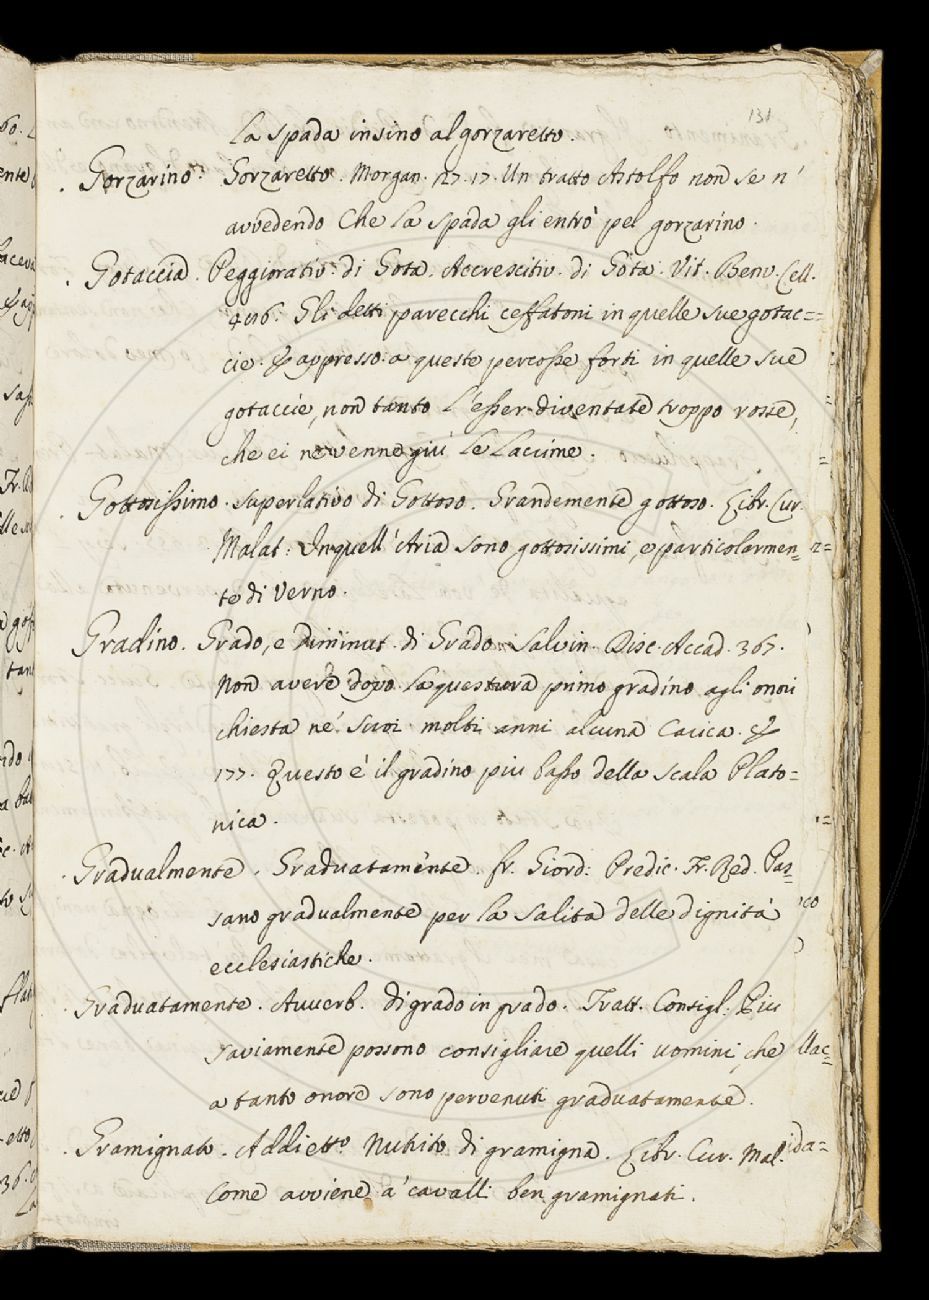 131
La spada insino al gorzaretto.
. Gorzarino. Gorzaretto. Morgan. 27. 17. Un tratto Astolfo non se n'
avvedendo Che la spada gli entrò pel gorzarino.
. Gotaccia. Peggiorativ. di Gota. Accrescitiv. di Gota. Vit. Benv. Cell.
406. Gli detti parecchi ceffatoni in quelle sue gotac=
cie. & appresso. a queste percosse forti in quelle sue
gotaccie, non tanto l'esser diventate troppo rosse,
che ei ne venne giù le lacrime.
. Gottosissimo. superlativo di Gottoso. Grandemente gottoso. Libr. Cur.
Malat. In quell'Aria sono gottosissimi, e particolarmen=
te di Verno.
Gradino. Grado, e diminut. di Grado. Salvin. Disc. Accad. 367.
Non avere dopo la questura primo gradino agli onori
chiesta ne' suoi molti anni alcuna Carica. &
177. Questo è il gradino piu basso della scala Plato=
nica.
. Gradualmente. Graduatamente. fr. Giord. Predic. Fr. Red. Pas=
sano gradualmente per la salita delle dignità
ecclesiastiche.
. Graduatamente. Avverb. di grado in grado. Tratt. Consigl. Piu
saviamente possono consigliare quelli uomini, che
a tanto onore sono pervenuti graduatamente.
. Gramignato. Addiett.o Nutrito di gramigna. Libr. Cur. Mal.
Come avviene a' cavalli ben gramignati.